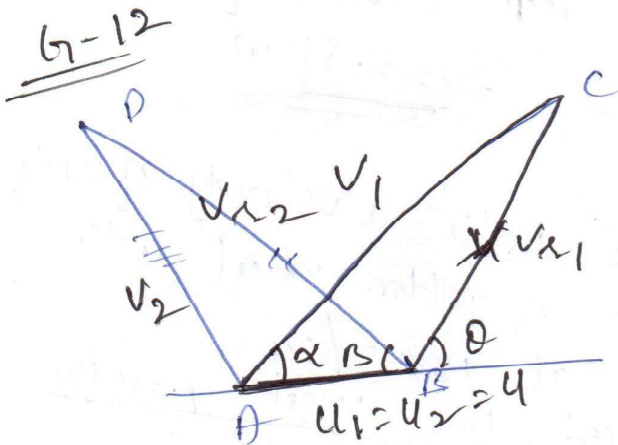 G-12
D
C
Vr2
V1
Vr1
V2
α
B
θ
A
B
u1=u2=u